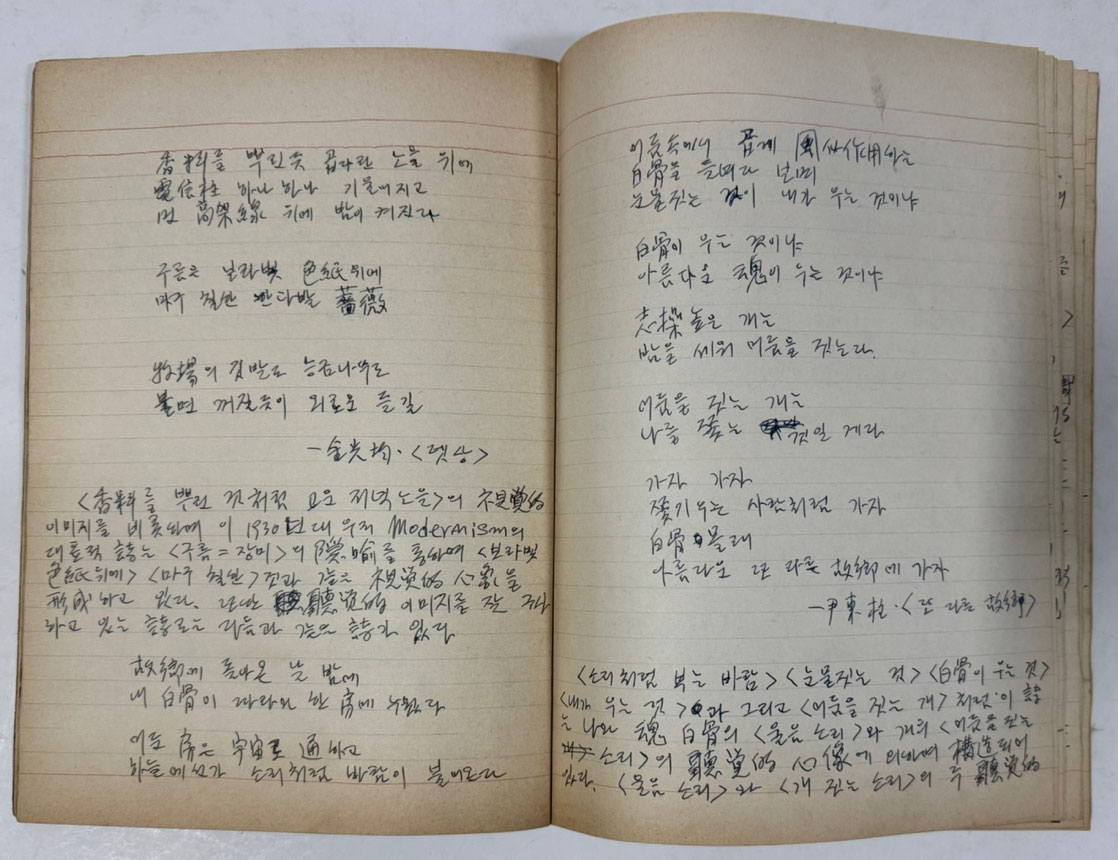 香料를 뿌린듯 곱다란 노을 위에
電信柱 하나 하나 기울어지고
먼 高架線 위에 밤이 켜진다
구름은 보라빛 色紙위에
마구 칠한 한다발 薔薇
牧場의 깃발도 능금나무도
불면 꺼질듯이 외로운 들길
—金光均·<뎃상>
<香料를 뿌린 것처럼 고운 저녁 노을>의 視覺的
이미지를 비롯하여 이 1930년대 우리 Modernism의
대표적 詩는 <구름=장미>의 隱喩를 통하여 <보라빛
色紙위에> <마구 칠한> 것과 같은 視覺的 心象을
形成하고 있다. 또한 聽覺的 이미지를 잘
하고 있는 詩로는 다음과 같은 詩가 있다
故鄕에 돌아온 날 밤에
내 白骨이 따라와 한 房에 누웠다
어둔 房은 宇宙로 通하고
하늘에선가 소리처럼 바람이 불어온다
어둠속에서 곱게 風化作用하는
白骨을 들여다 보며
눈물짓는 것이 내가 우는 것이냐
白骨이 우는 것이냐
아름다운 魂이 우는 것이냐
志操 높은 개는
밤을 세워 어둠을 짖는다.
어둠을 짖는 개는
나를 쫓는 것일 게다
가자 가자
쫓기우는 사람처럼 가자
白骨 몰래
아름다운 또 다른 故鄕에 가자
—尹東柱·<또 다른 故鄕>
<소리처럼 부는 바람> <눈물짓는 것> <白骨이 우는 것>
<내가 우는 것>과 그리고 <어둠을 짖는 개>처럼 이 詩
는 나와 魂 白骨의 <울음 소리>와 개의 <어둠을 짖는
소리>의 聽覺的 心像에 의하여 構造되어
있다. <울음 소리>와 <개 짖는 소리>의 두 聽覺的